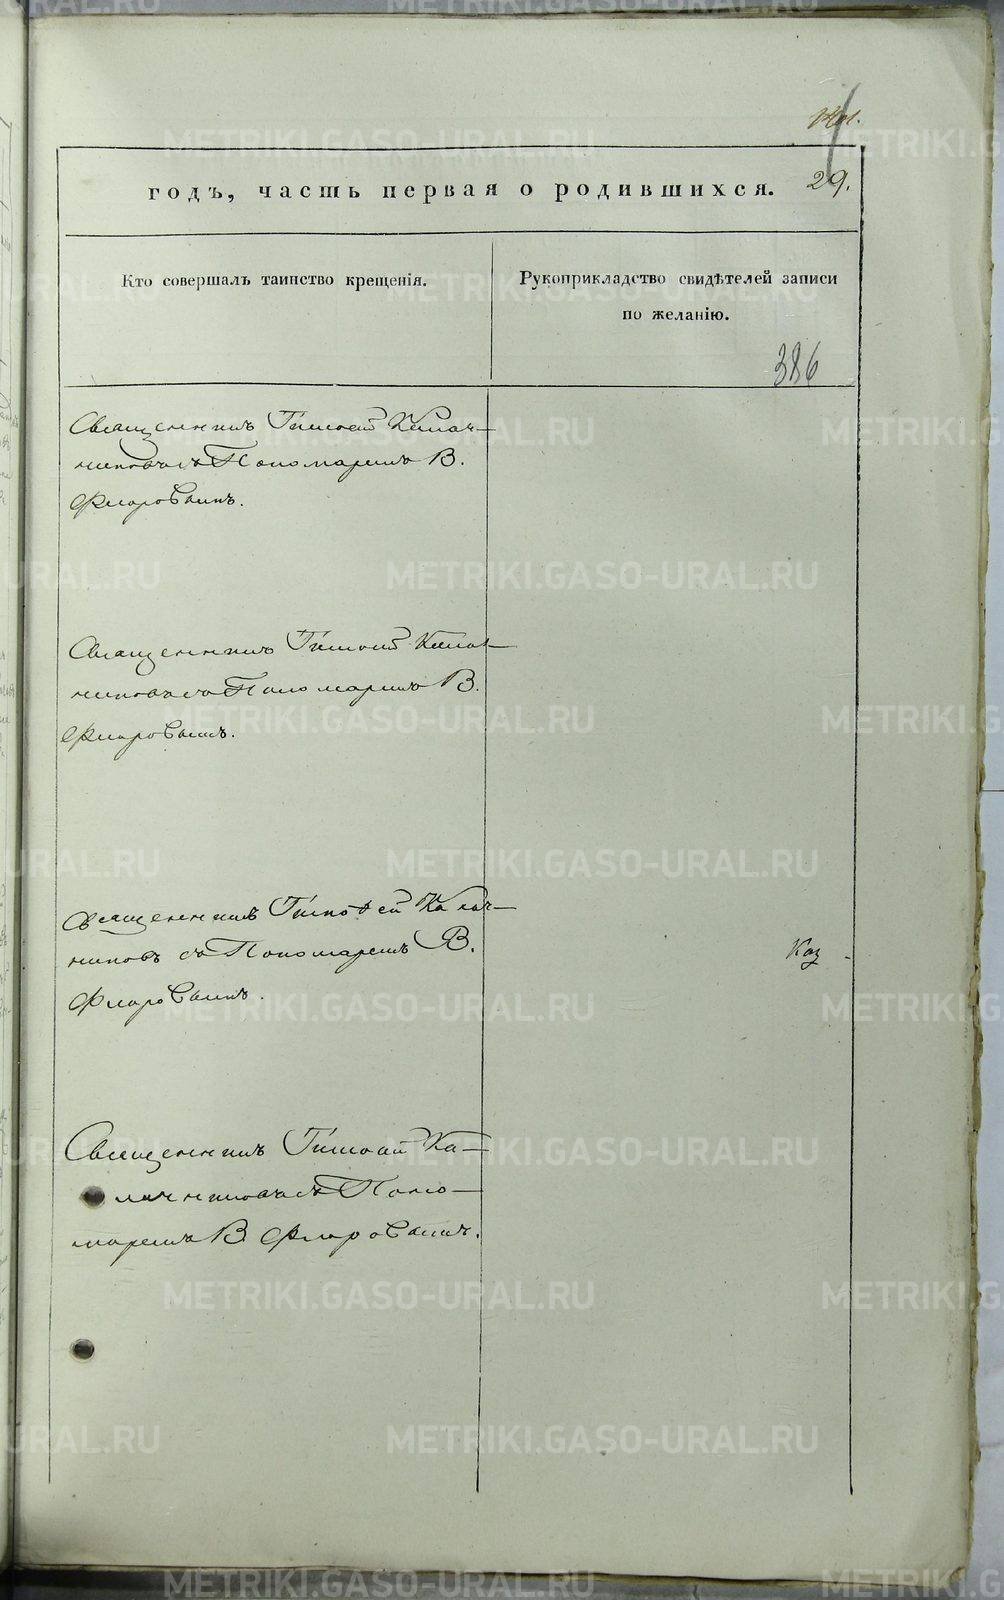 29.
годъ, часть первая о родившихся.
Кто совершалъ таинство крещенія.
Рукоприкладство свидѣтелей записи
по желанію.
386
Священникъ Тимоѳей Калач-
никовъ съ Пономаремъ В.
Флоровымъ.
Священникъ Тимоѳей Калач-
никовъ съ Пономаремъ В.
Флоровымъ.
Священникъ Тимоѳей Калач-
никовъ съ Пономаремъ В.
Флоровымъ.
Каз
Священникъ Тимоѳей Ка-
лачниковъ съ Поно-
маремъ В. Флоровымъ.
METRIKI.GASO-URAL.RU